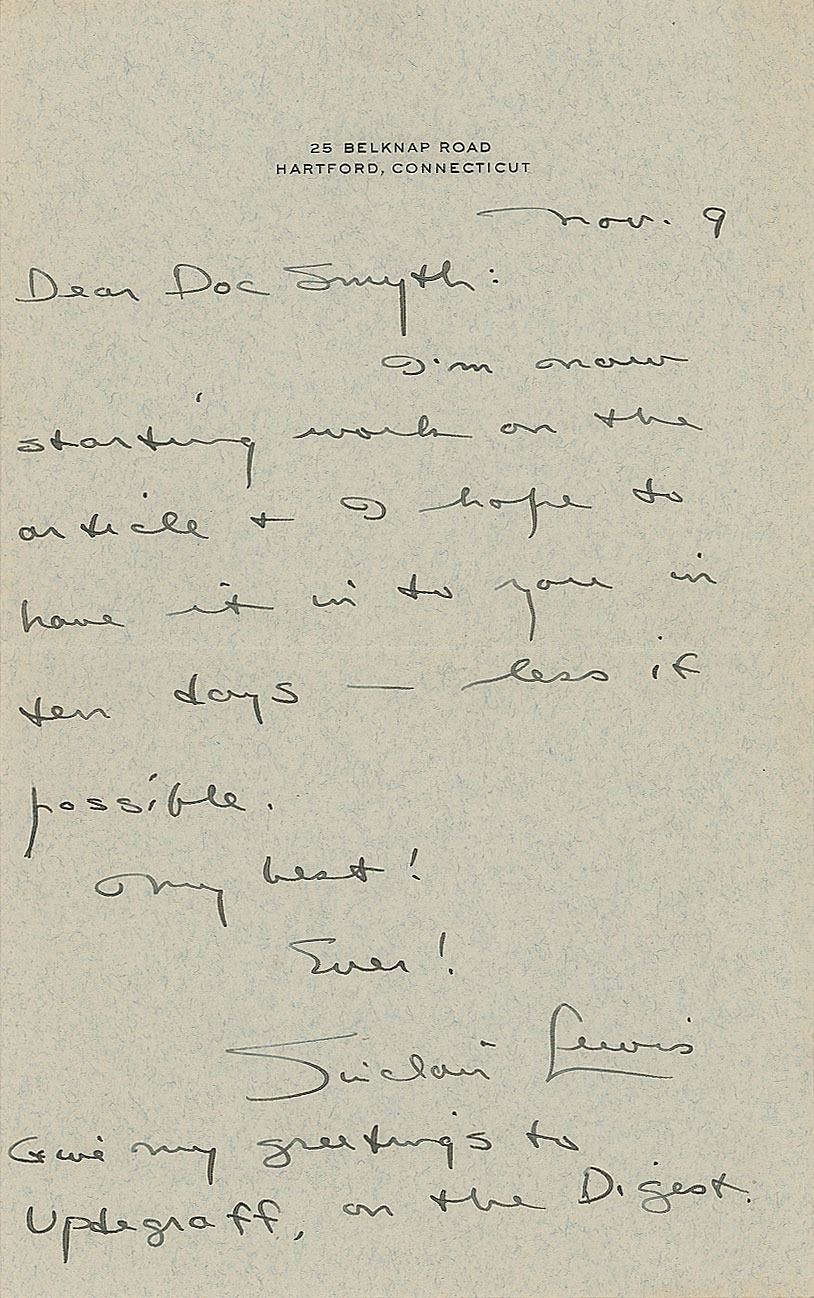 25 BELKNAP ROAD
HARTFORD, CONNECTICUT
Nov. 9
Dear Doc Smyth:
I'm now
starting work on the
article + I hope to
have it in to you in
ten days — less if
possible.
My best!
Ever!
Sinclair Lewis
Give my greetings to
Updegraff, on the Digest.